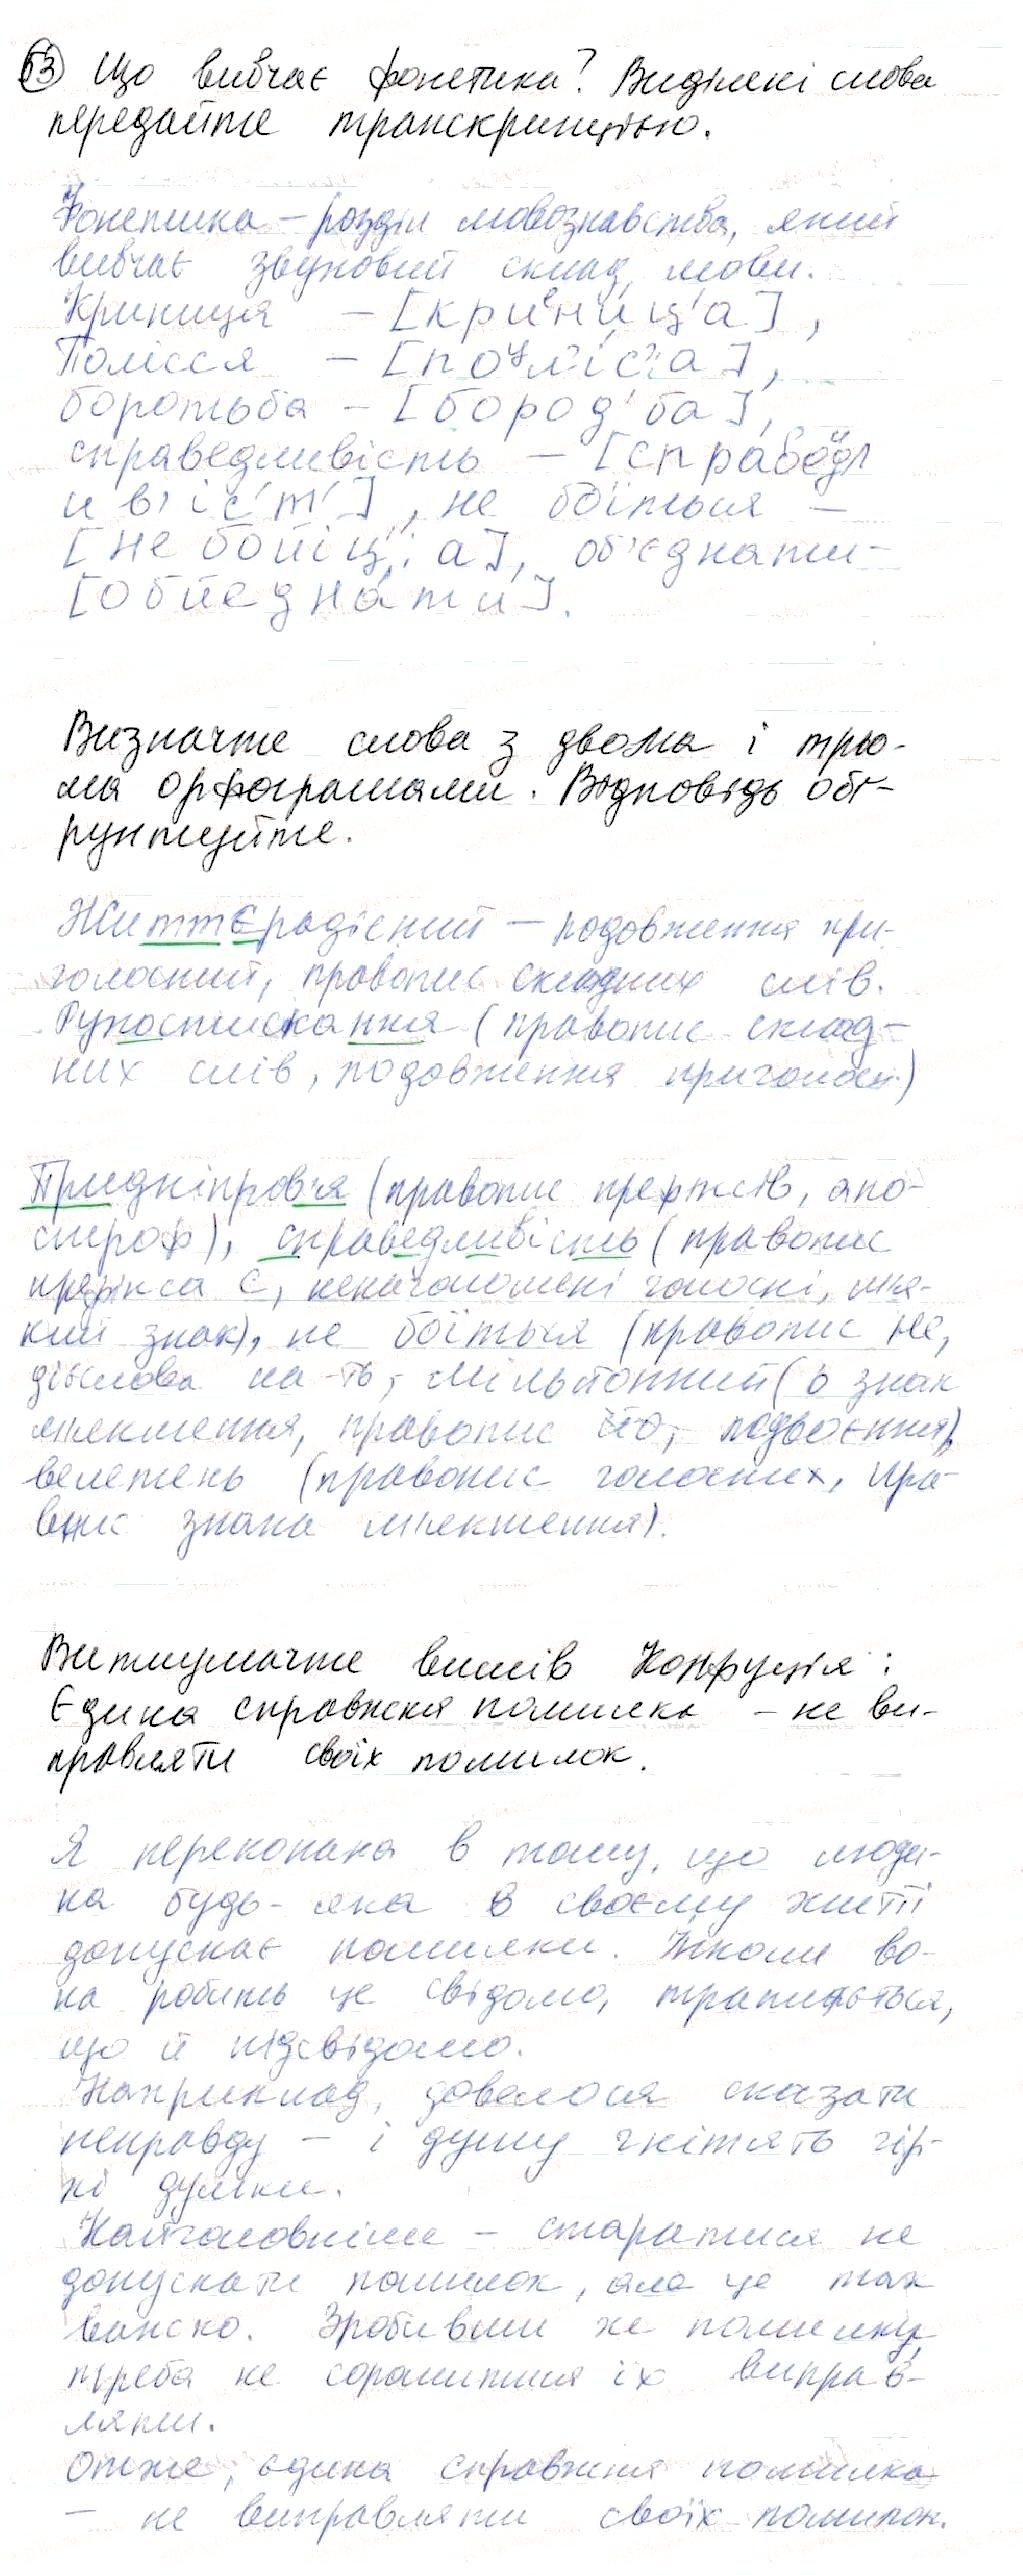 63 Що вивчає фонетика? Виділені слова
передайте транскрипцією.
Фонетика – розділ мовознавства, який
вивчає звуковий склад мови.
Криниця – [криᵉни́ц'а],
Полісся – [поᵘл'і́с':а],
боротьба – [бород'ба],
справедливість – [справеᶦдл
ив'іс'т'], не боїться –
[не бойіц':а], об'єднати –
[обйедна́ти].
Визначте слова з двома і трьо-
ма орфограмами. Відповідь обґ-
рунтуйте.
Життєрадісний – подовження при-
голосний, правопис складних слів.
Рукостискання (правопис склад-
них слів, подовження приголосн.)
Придніпров'я (правопис префіксів, апо-
строф), справедливість (правопис
префікса с, ненаголошені голосні, мя-
кий знак), не боїться (правопис не,
дієслова на -ть, мільйонний (ь знак
мякшення, правопис йо, подвоєння),
велетень (правопис голосних, пра-
впис знака мякшення).
Витлумачте вислів Конфуція:
Єдина справжня помилка – не ви-
правляти своїх помилок.
Я переконана в тому, що люди-
на будь-яка в своєму житті
допускає помилки. Інколи во-
на робить це свідомо, трапляється,
що й підсвідомо.
Наприклад, довелося сказати
неправду – і душу гнітять гір-
кі думки.
Найголовніше – старатися не
допускати помилок, але це так
важко. Зробивши же помилку,
треба не соромитися їх виправ-
ляти.
Отже, єдина справжня помилка
– не виправляти своїх помилок.